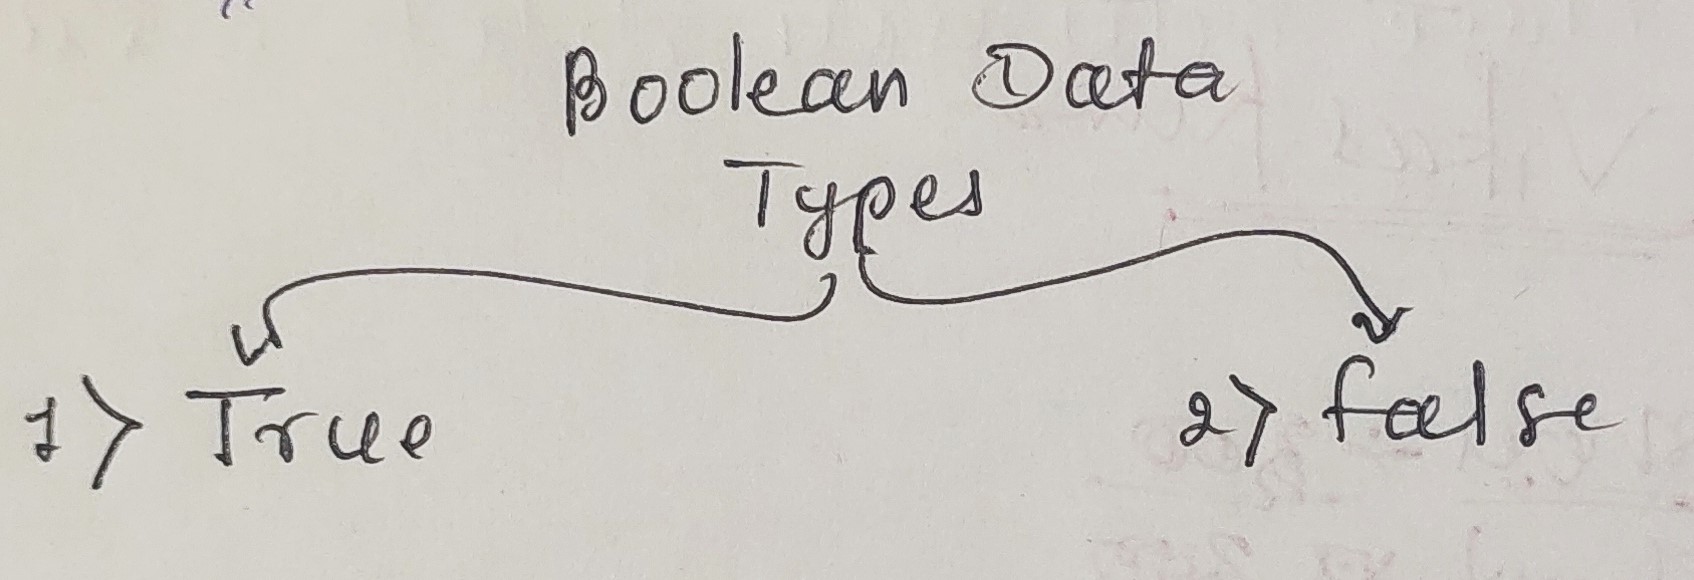 Boolean Data
Types
1> True
2> false